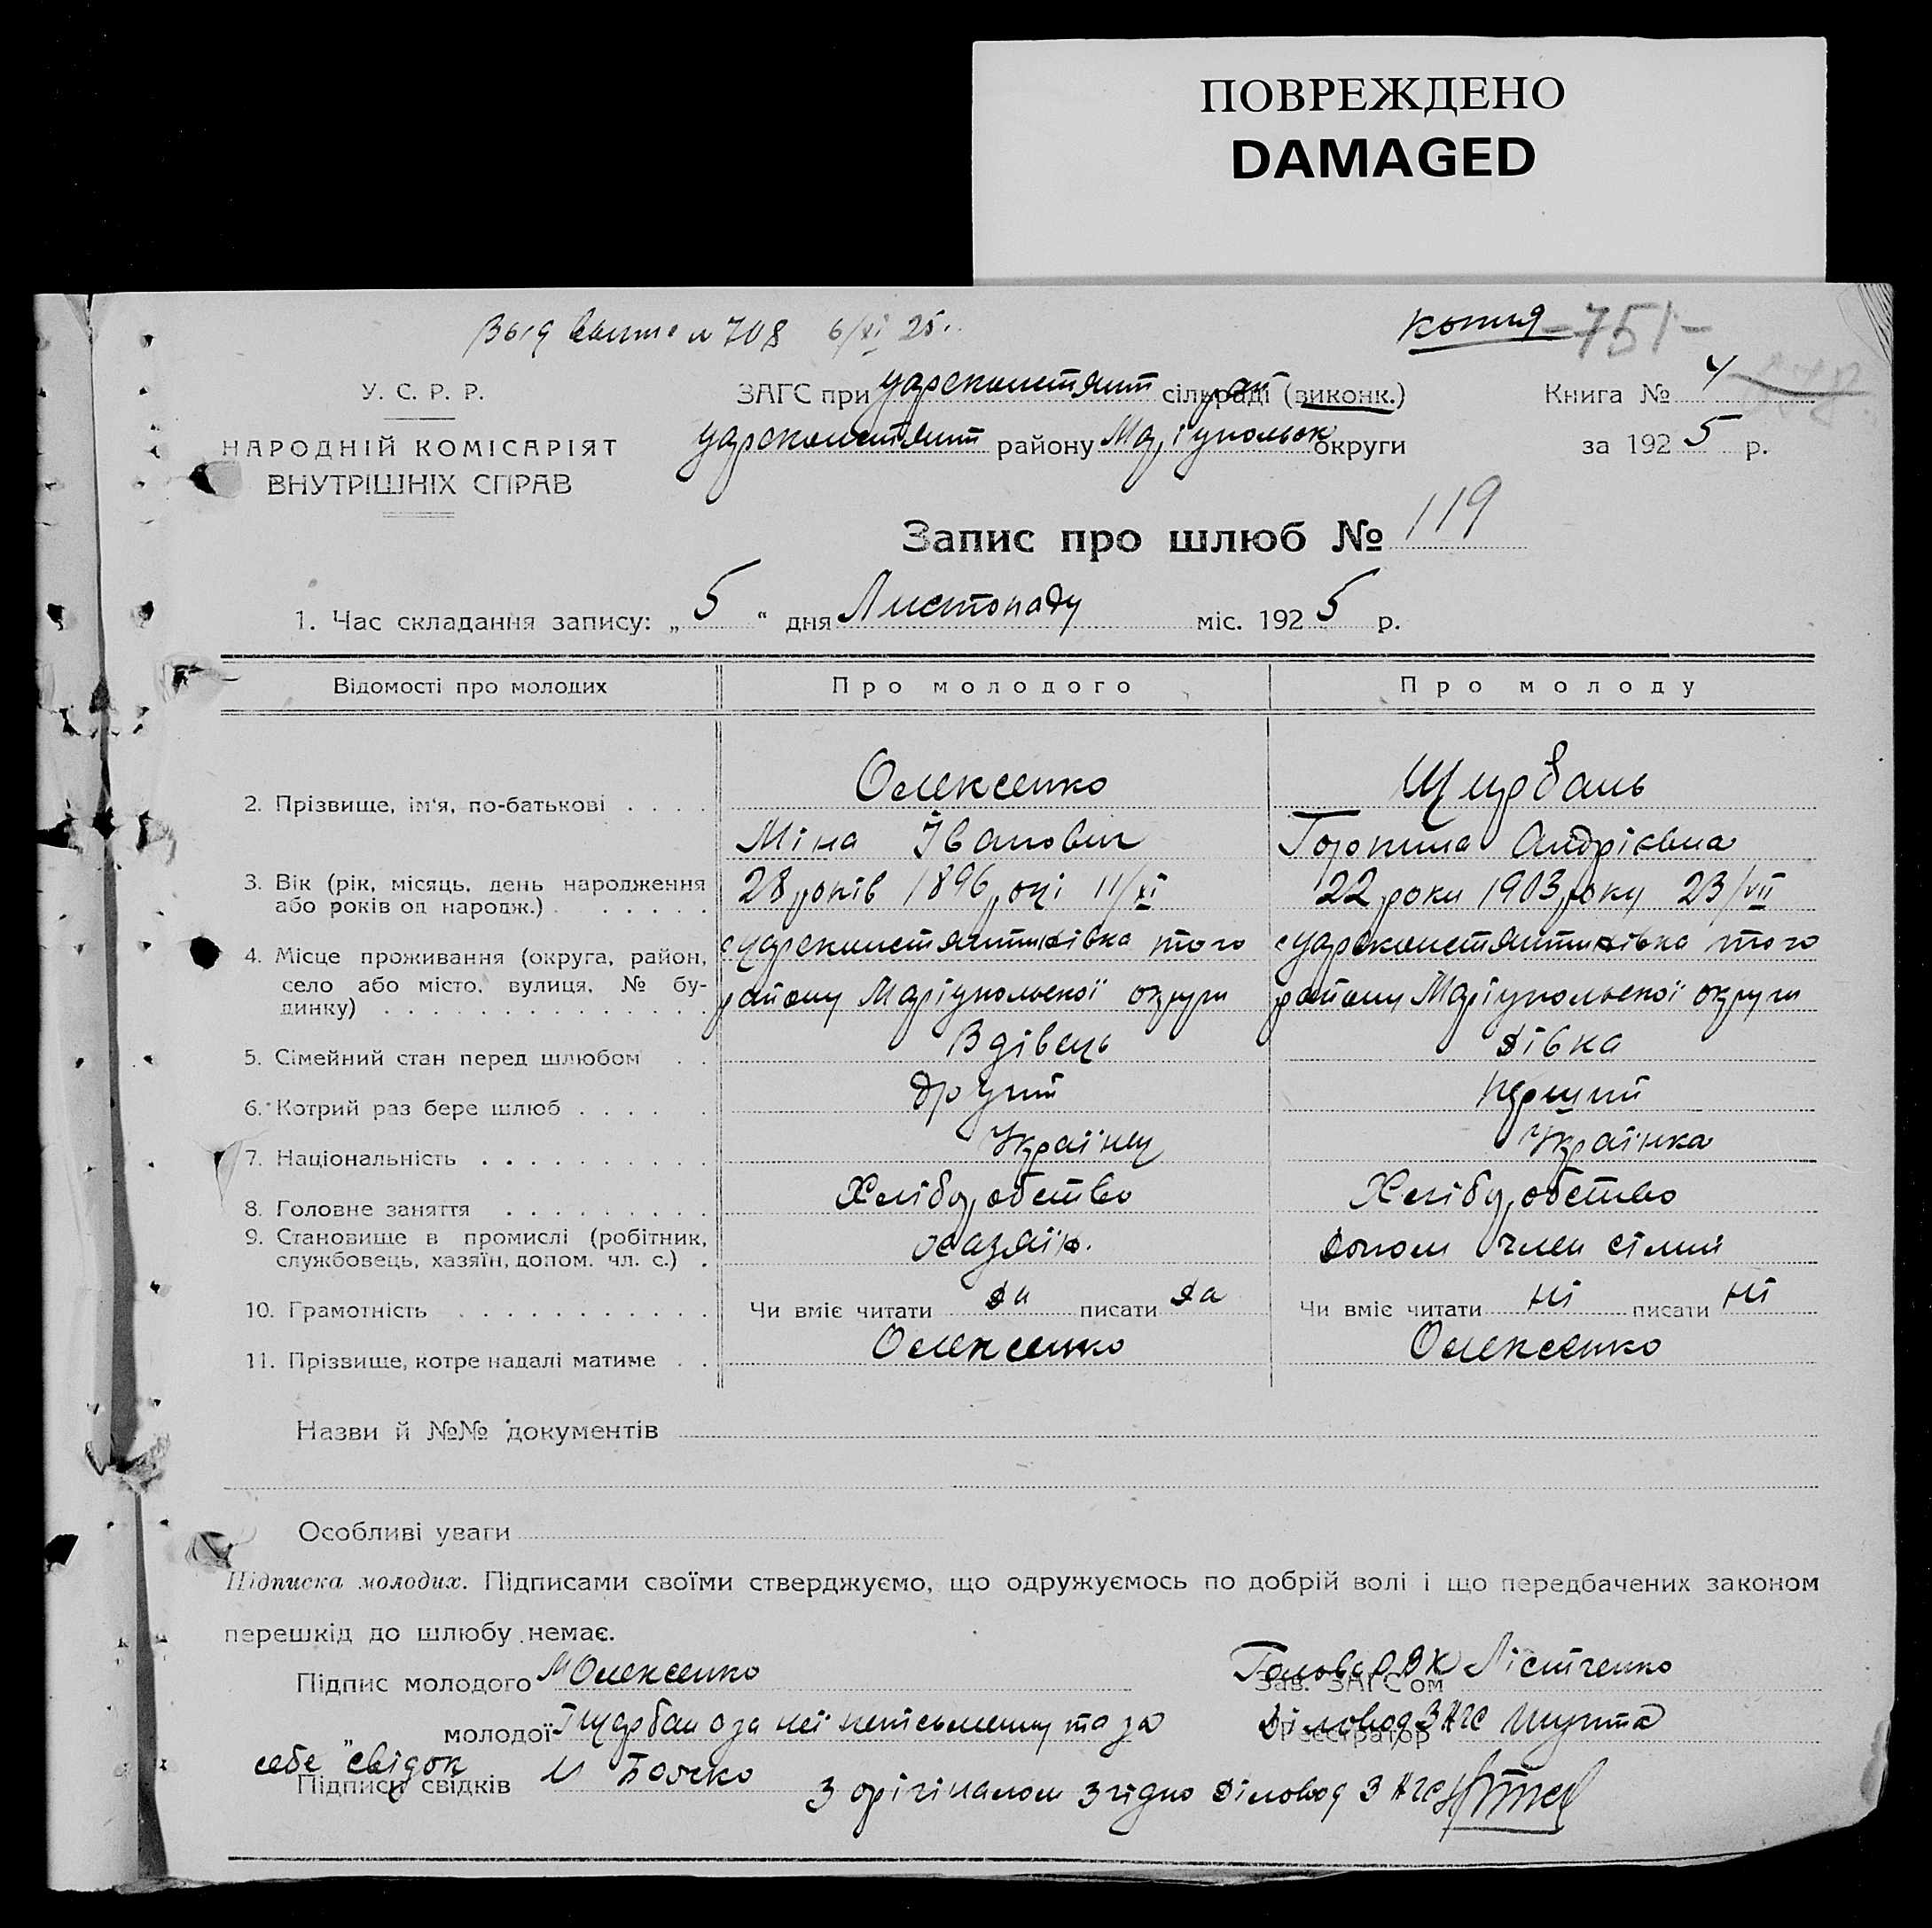 ПОВРЕЖДЕНО
DAMAGED
№ 708 6/XI 25.
копия -751-
У. С. Р. Р.
НАРОДНІЙ КОМІСАРІЯТ
ВНУТРІШНІХ СПРАВ
ЗАГС при Царсконстянт сільраді (виконк.)
Царсконстянт району Маріупольск округи
Книга № 4
за 1925 р.
Запис про шлюб № 119
1. Час складання запису: „5“ дня Листопаду міс. 1925 р.
Відомості про молодих Про молодого Про молоду
2. Прізвище, ім'я, по-батькові . . . . Олексенко Щурбань
Міна Іванович Горпина Андріевна
3. Вік (рік, місяць, день народження або років од народж.) . . . . . . 28 років 1896 роцi 11/XI 22 роки 1903 року 23/VII
4. Місце проживання (округа, район, село або місто, вулиця, № будинку) . . . . . . с Царсконстянтинівка того району Маріупольскої округи с Царсконстянтинівка того району Маріупольскої округи
5. Сімейний стан перед шлюбом . . Вдівець дівка
6. Котрий раз бере шлюб . . . . . другий перший
7. Національність . . . . . . . . . . Українец Українка
8. Головне заняття . . . . . . . . . Хліборобство Хліборобство
9. Становище в промислі (робітник, службовець, хазяїн, допом. чл. с.) . хазяїн. допом член сімии
10. Грамотність . . . . . . . . . . . . Чи вміє читати да писати да Чи вміє читати ні писати ні
11. Прізвище, котре надалі матиме . . Олексенко Олексенко
Назви й №№ документів
Особливі уваги
Підписка молодих. Підписами своїми стверджуємо, що одружуємось по добрій волі і що передбачених законом
перешкід до шлюбу немає.
Підпис молодого М Олексенко Голова РВК Лістченко
Зав. ЗАГС'ом
молодої Г Щербан а за неї неписьменну та за Діловод ЗАГС
Реєстратор
себе "свідок
Підписи свідків И
З орігіналом згідно Діловод ЗАГС